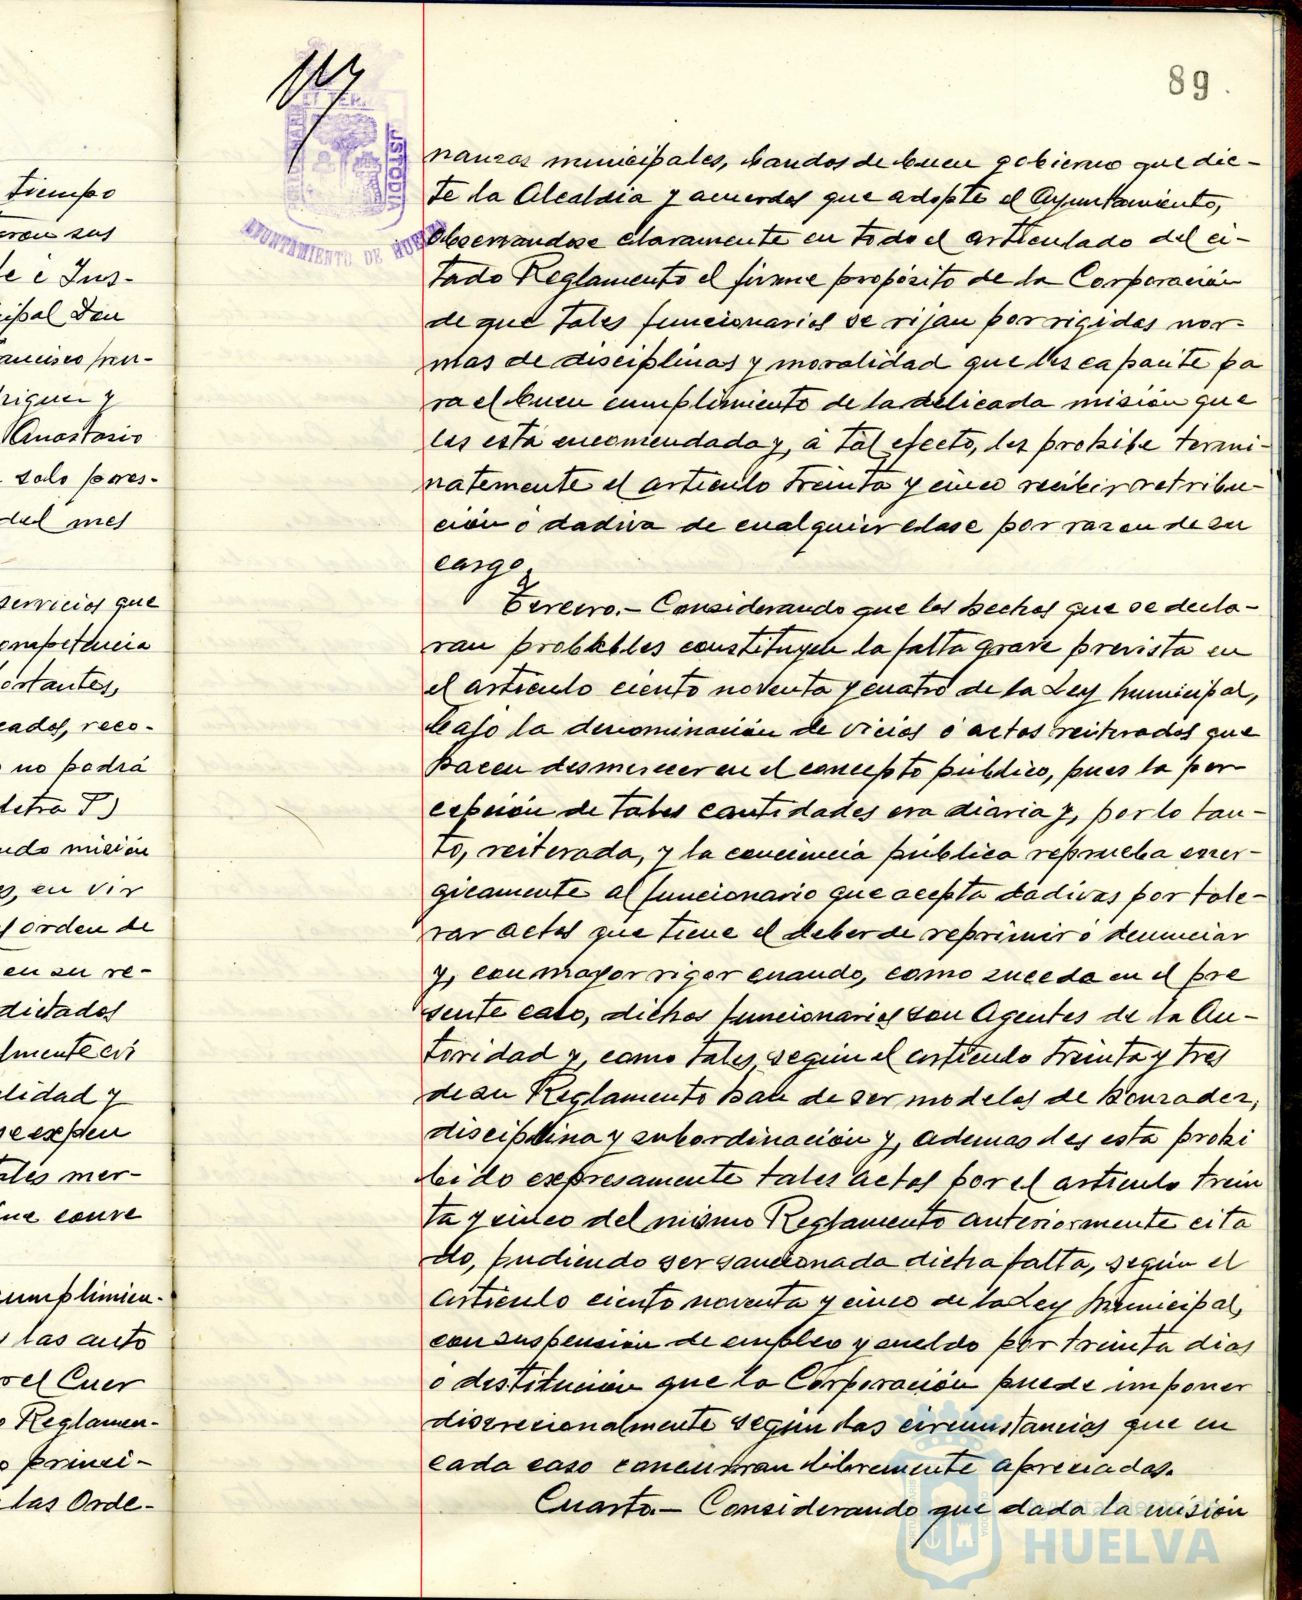 tiempo
eron sus
le é Ins-
cipal Don
ancisco
riguez y
Anastasio
solo
del mes
servicios que
ompetencia
ortantes,
cados, reco-
no podrá
letra T)
ndo misión
es, en vir
orden de
en su re-
dictados
lmente
lidad y
se expen
tales mer-
que conve
cumplimien-
las auto
or el Cuer
Reglamen-
o princi-
las Orde-
89.
ET TERR
CUSTODIA
AYUNTAMIENTO DE HUELVA
nanzas municipales, bandos de buen gobierno que dic-
te la Alcaldia y acuerdos que adopte el Ayuntamiento,
observandose claramente en todo el articulado del ci-
tado Reglamento el firme propósito de la Corporación
de que tales funcionarios se rijan por rigidas nor-
mas de disciplinas y moralidad que les capacite pa
ra el buen cumplimiento de la delicada misión que
les está encomendada y, á tal efecto, les prohibe termi-
natemente el articulo treinta y cinco recibir retribu-
ción ó dadiva de cualquier clase por razon de su
cargo.
Tercero.- Considerando que los hechos que se decla-
ran probables constituyen la falta grave prevista en
el articulo ciento noventa y cuatro de la Ley Municipal,
bajo la denominación de vicios ó actos reiterados que
hacen desmerecer en el concepto público, pues la per-
cepción de tales cantidades era diaria y, por lo tan-
to, reiterada, y la conciencia pública reprueba ener-
gicamente al funcionario que acepta dadivas por tole-
rar actos que tiene el deber de reprimir ó denunciar
y, con mayor rigor cuando, como suceda en el pre
sente caso, dichos funcionarios son Agentes de la Au-
toridad y, como tales, según el articulo treinta y tres
de su Reglamento han de ser modelos de honradez,
disciplina y subordinación y, ademas les esta prohi
bido expresamente tales actos por el articulo trein
ta y cinco del mismo Reglamento anteriormente cita
do, pudiendo ser sancionada dicha falta, según el
articulo ciento noventa y cinco de la Ley Municipal,
con suspensión de empleo y sueldo por treinta dias
ó destitución que la Corporación puede imponer
discrecionalmente según las circunstancias que en
cada caso concurran libremente apreciadas.
Cuarto.- Considerando que dada la misión
Ayuntamiento de
HUELVA